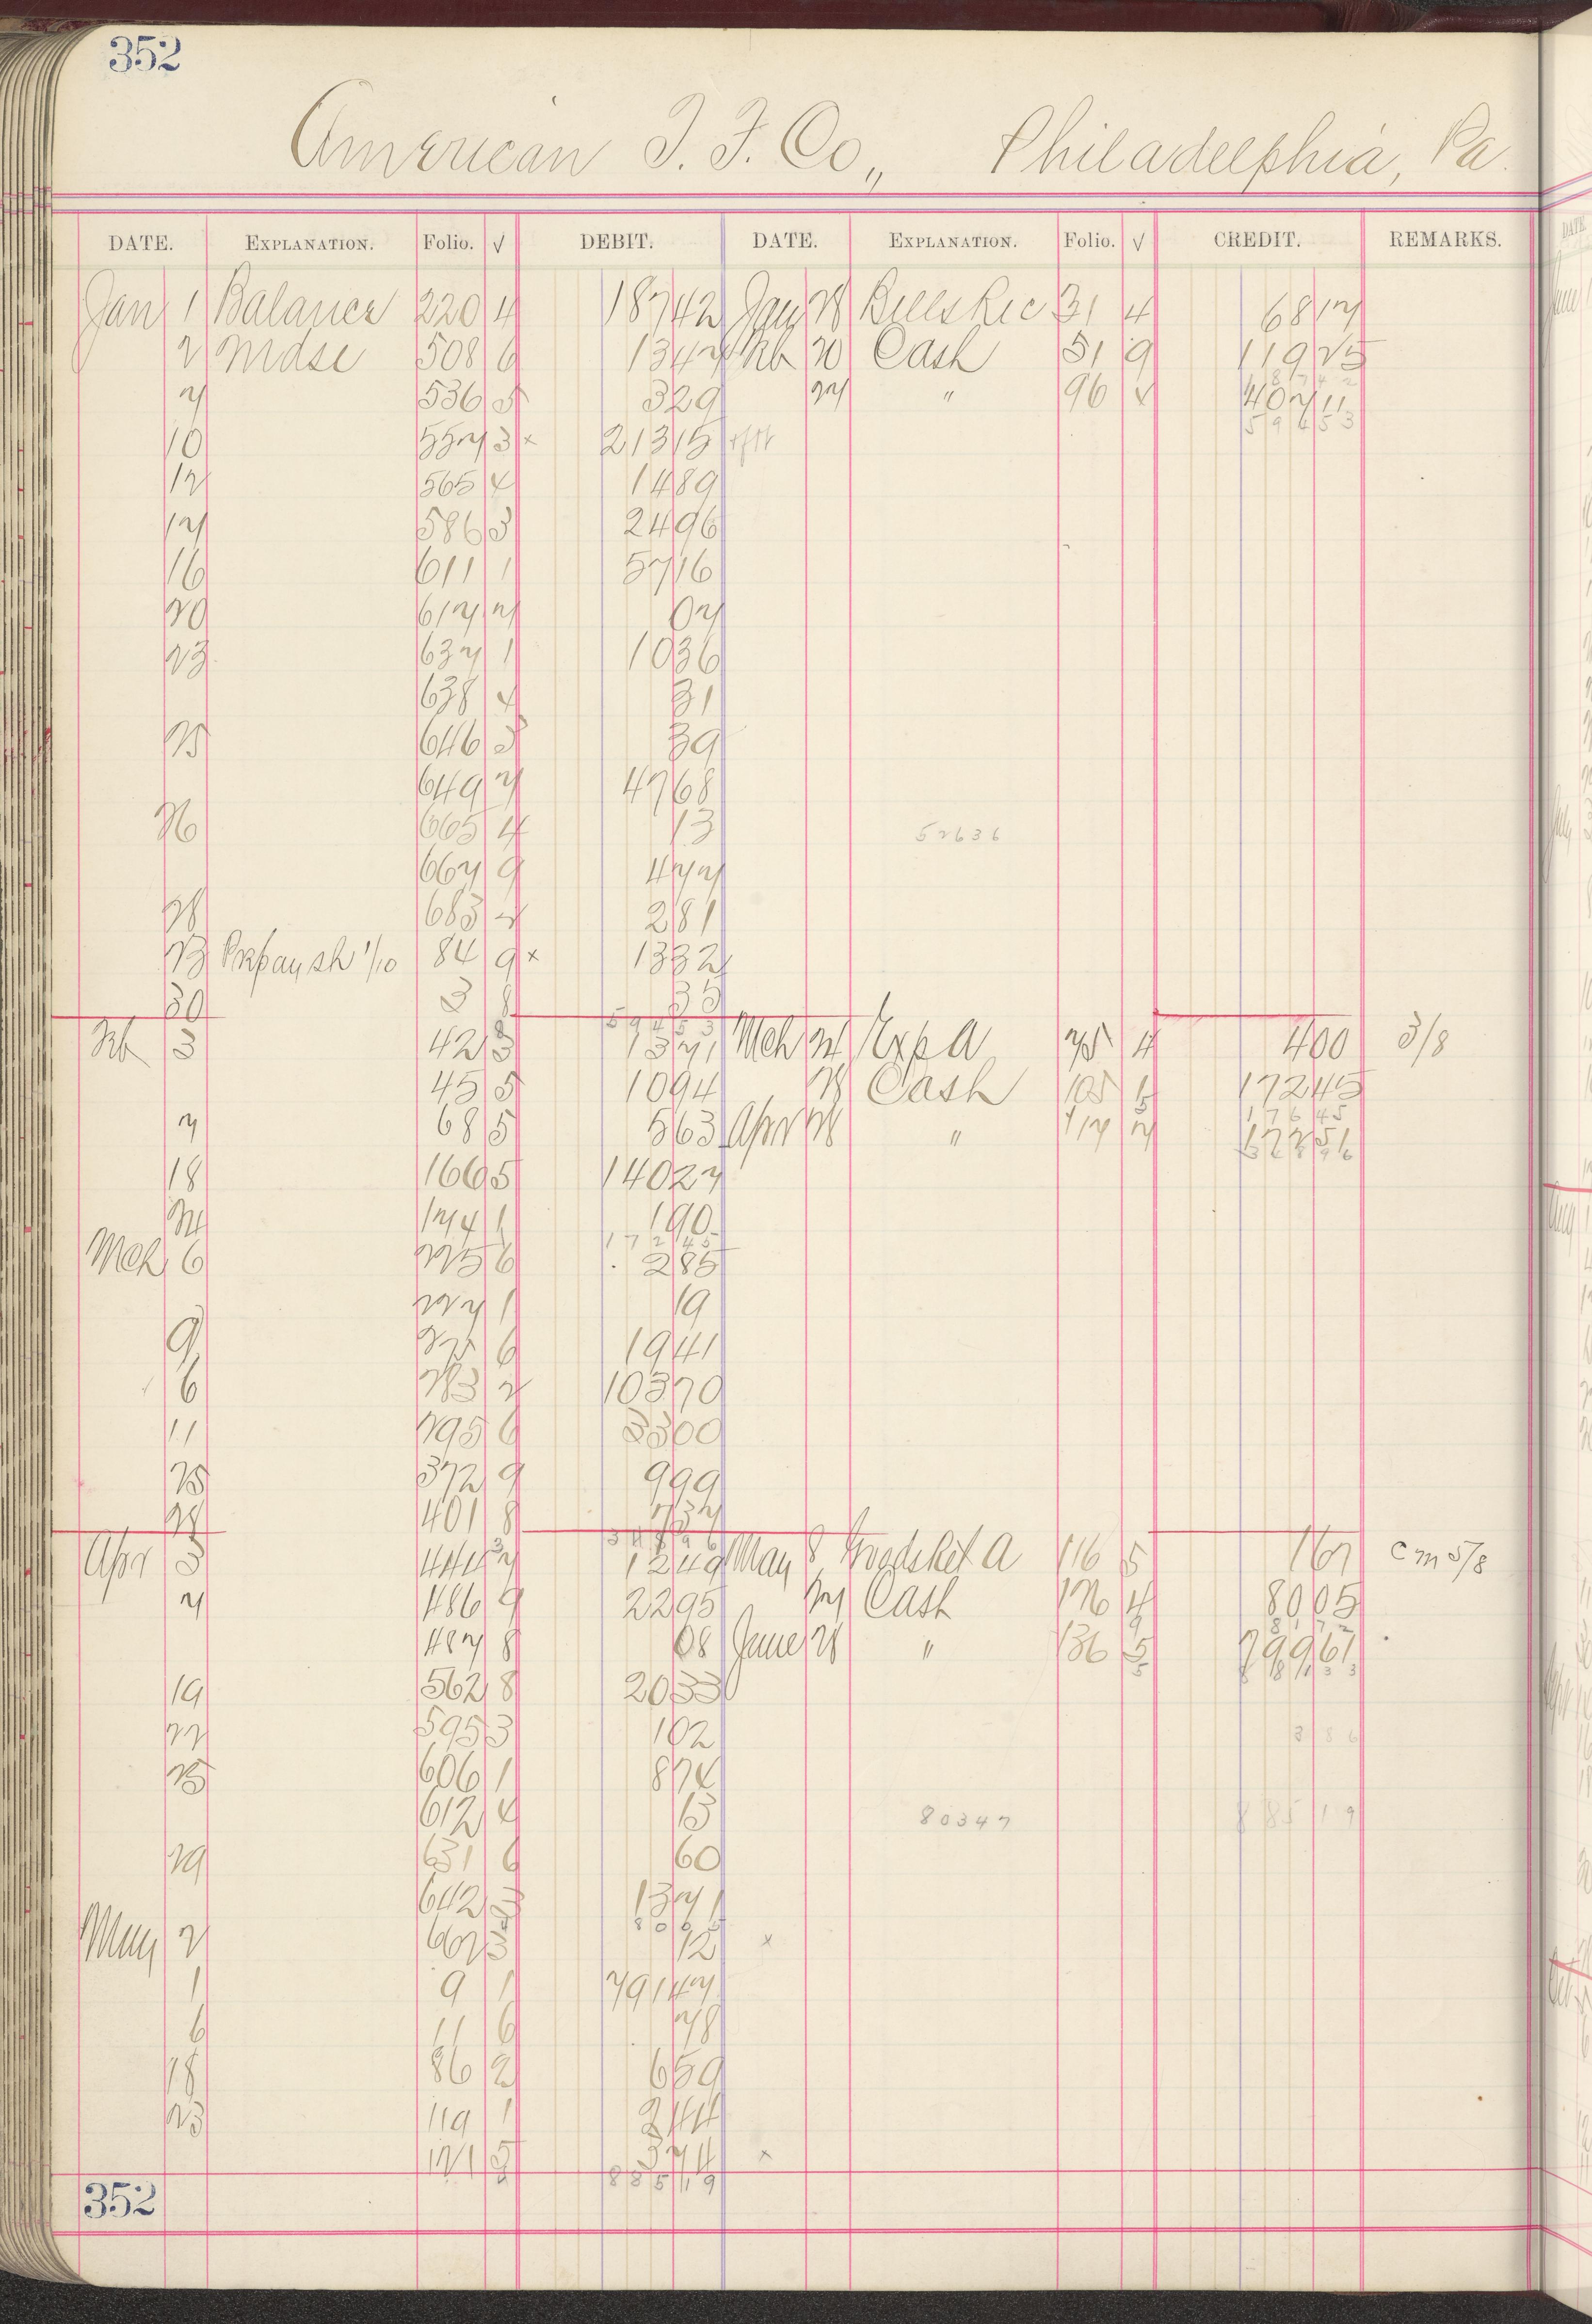 352
American I. F. Co., Philadelphia, Pa.
DATE. EXPLANATION. Folio. √ DEBIT. DATE. EXPLANATION. Folio. √ CREDIT. REMARKS.
Jan 1 Balance 220 4 187 42 Jan 28 Bills Rec 31 4 68 12
2 Mdse 508 6 13 42 Feb 20 Cash 51 9 119 25
7 536 5 3 29 27 " 96
10 557 3 x 213 15
12 565 4 14 89
14 586 3 24 96
16 611 1 57 16
20 617 07
23 637 1 10 36
638 31
25 646 5 39
649 7 47 68
26 665 4 13 52636
667 9 4 77
28 683 2 81
23 84 9 x 13 32
30 3 8 35
59453
Feb 3 42 3 13 71 Mch 24 Exp a 75 4 4 00 3/8
45 5 10 94 28 Cash 105 172 45
7 68 5 5 63 Apr 28 " 117
18 166 5 140 27
24 174 1 1 90
17245
Mch 6 225 6 2 85
227 1 19
9 6 19 41
6 283 2 103 70
11 295 6 33 00
25 372 9 9 99
401 8
Apr 3 12 49 May 8 a 116 5 1 67 cm 5/8
7 486 9 22 95 27 Cash 126 4 80 05
487 8 08 June 28 " 136 5 799 61
19 562 8 20 33
22 595 3 1 02 386
25 606 1 8 74
612 4 15 80347 88519
29 631 6 60
642 13 71
May 2 12 x
1 9 1 791 47
6 11 6 78
18 86 2 6 59
23 119 1 2 44
121 5 3 74 x
88519
352